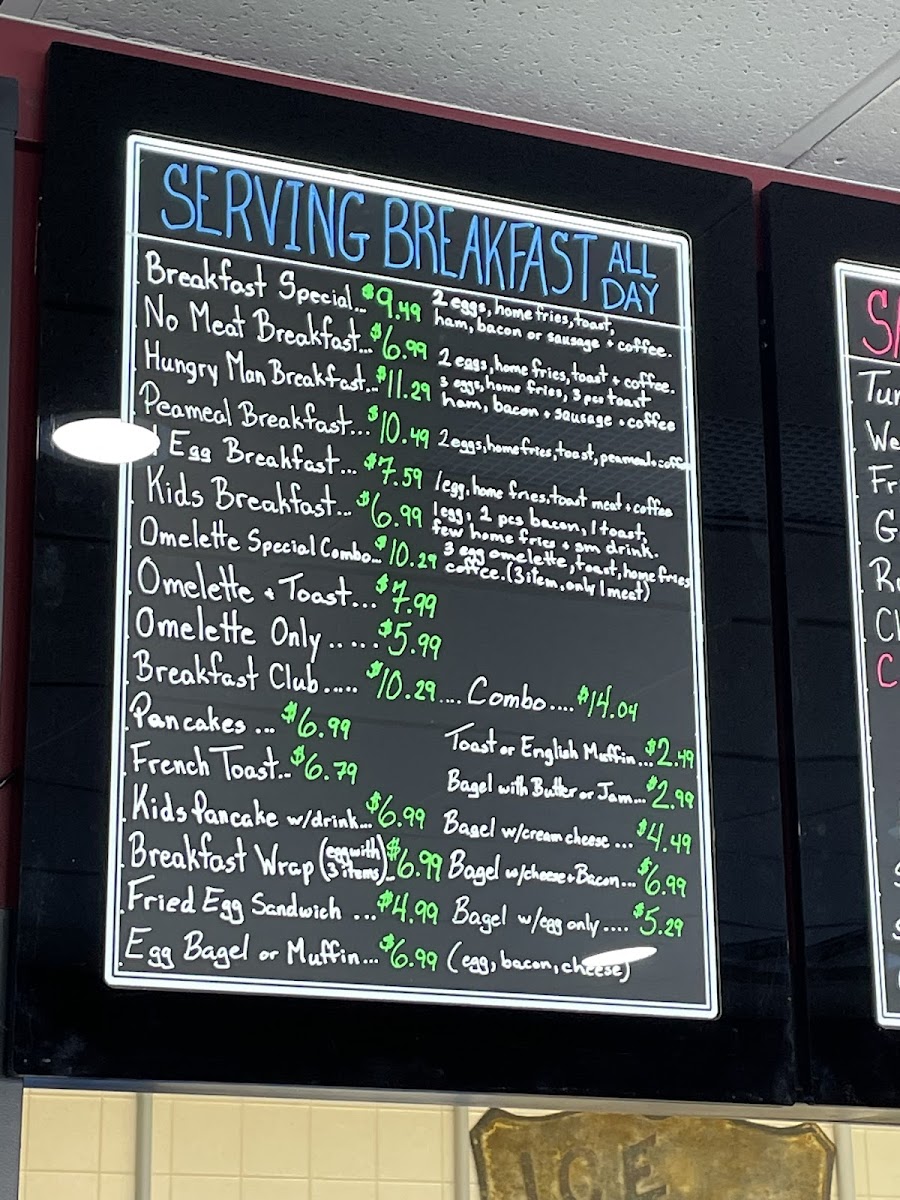 SERVING BREAKFAST ALL DAY
Breakfast Special... $9.49 2 eggs, home fries, toast,
ham, bacon or sausage + coffee.
No Meat Breakfast... $6.99 2 eggs, home fries, toast + coffee.
Hungry Man Breakfast... $11.29 3 eggs, home fries, 3 pcs toast
ham, bacon + sausage + coffee
Peameal Breakfast... $10.49 2 eggs, home fries, toast, peameal + coffee
1 Egg Breakfast... $7.59 1 egg, home fries, toast meat + coffee
Kids Breakfast... $6.99 1 egg, 2 pcs bacon, 1 toast,
few home fries + sm drink.
Omelette Special Combo... $10.29 3 egg omelette, toast, home fries
coffee. (3 item, only 1 meat)
Omelette + Toast... $7.99
Omelette Only ..... $5.99
Breakfast Club..... $10.29.... Combo.... $14.04
Pancakes ... $6.99
Toast or English Muffin... $2.49
French Toast... $6.79
Bagel with Butter or Jam... $2.99
Kids Pancake w/drink... $6.99
Bagel w/cream cheese ... $4.49
Breakfast Wrap (egg with 3 items) $6.99
Bagel w/cheese + Bacon... $6.99
Fried Egg Sandwich ... $4.99
Bagel w/egg only .... $5.29
Egg Bagel or Muffin... $6.99 (egg, bacon, cheese)
ICE